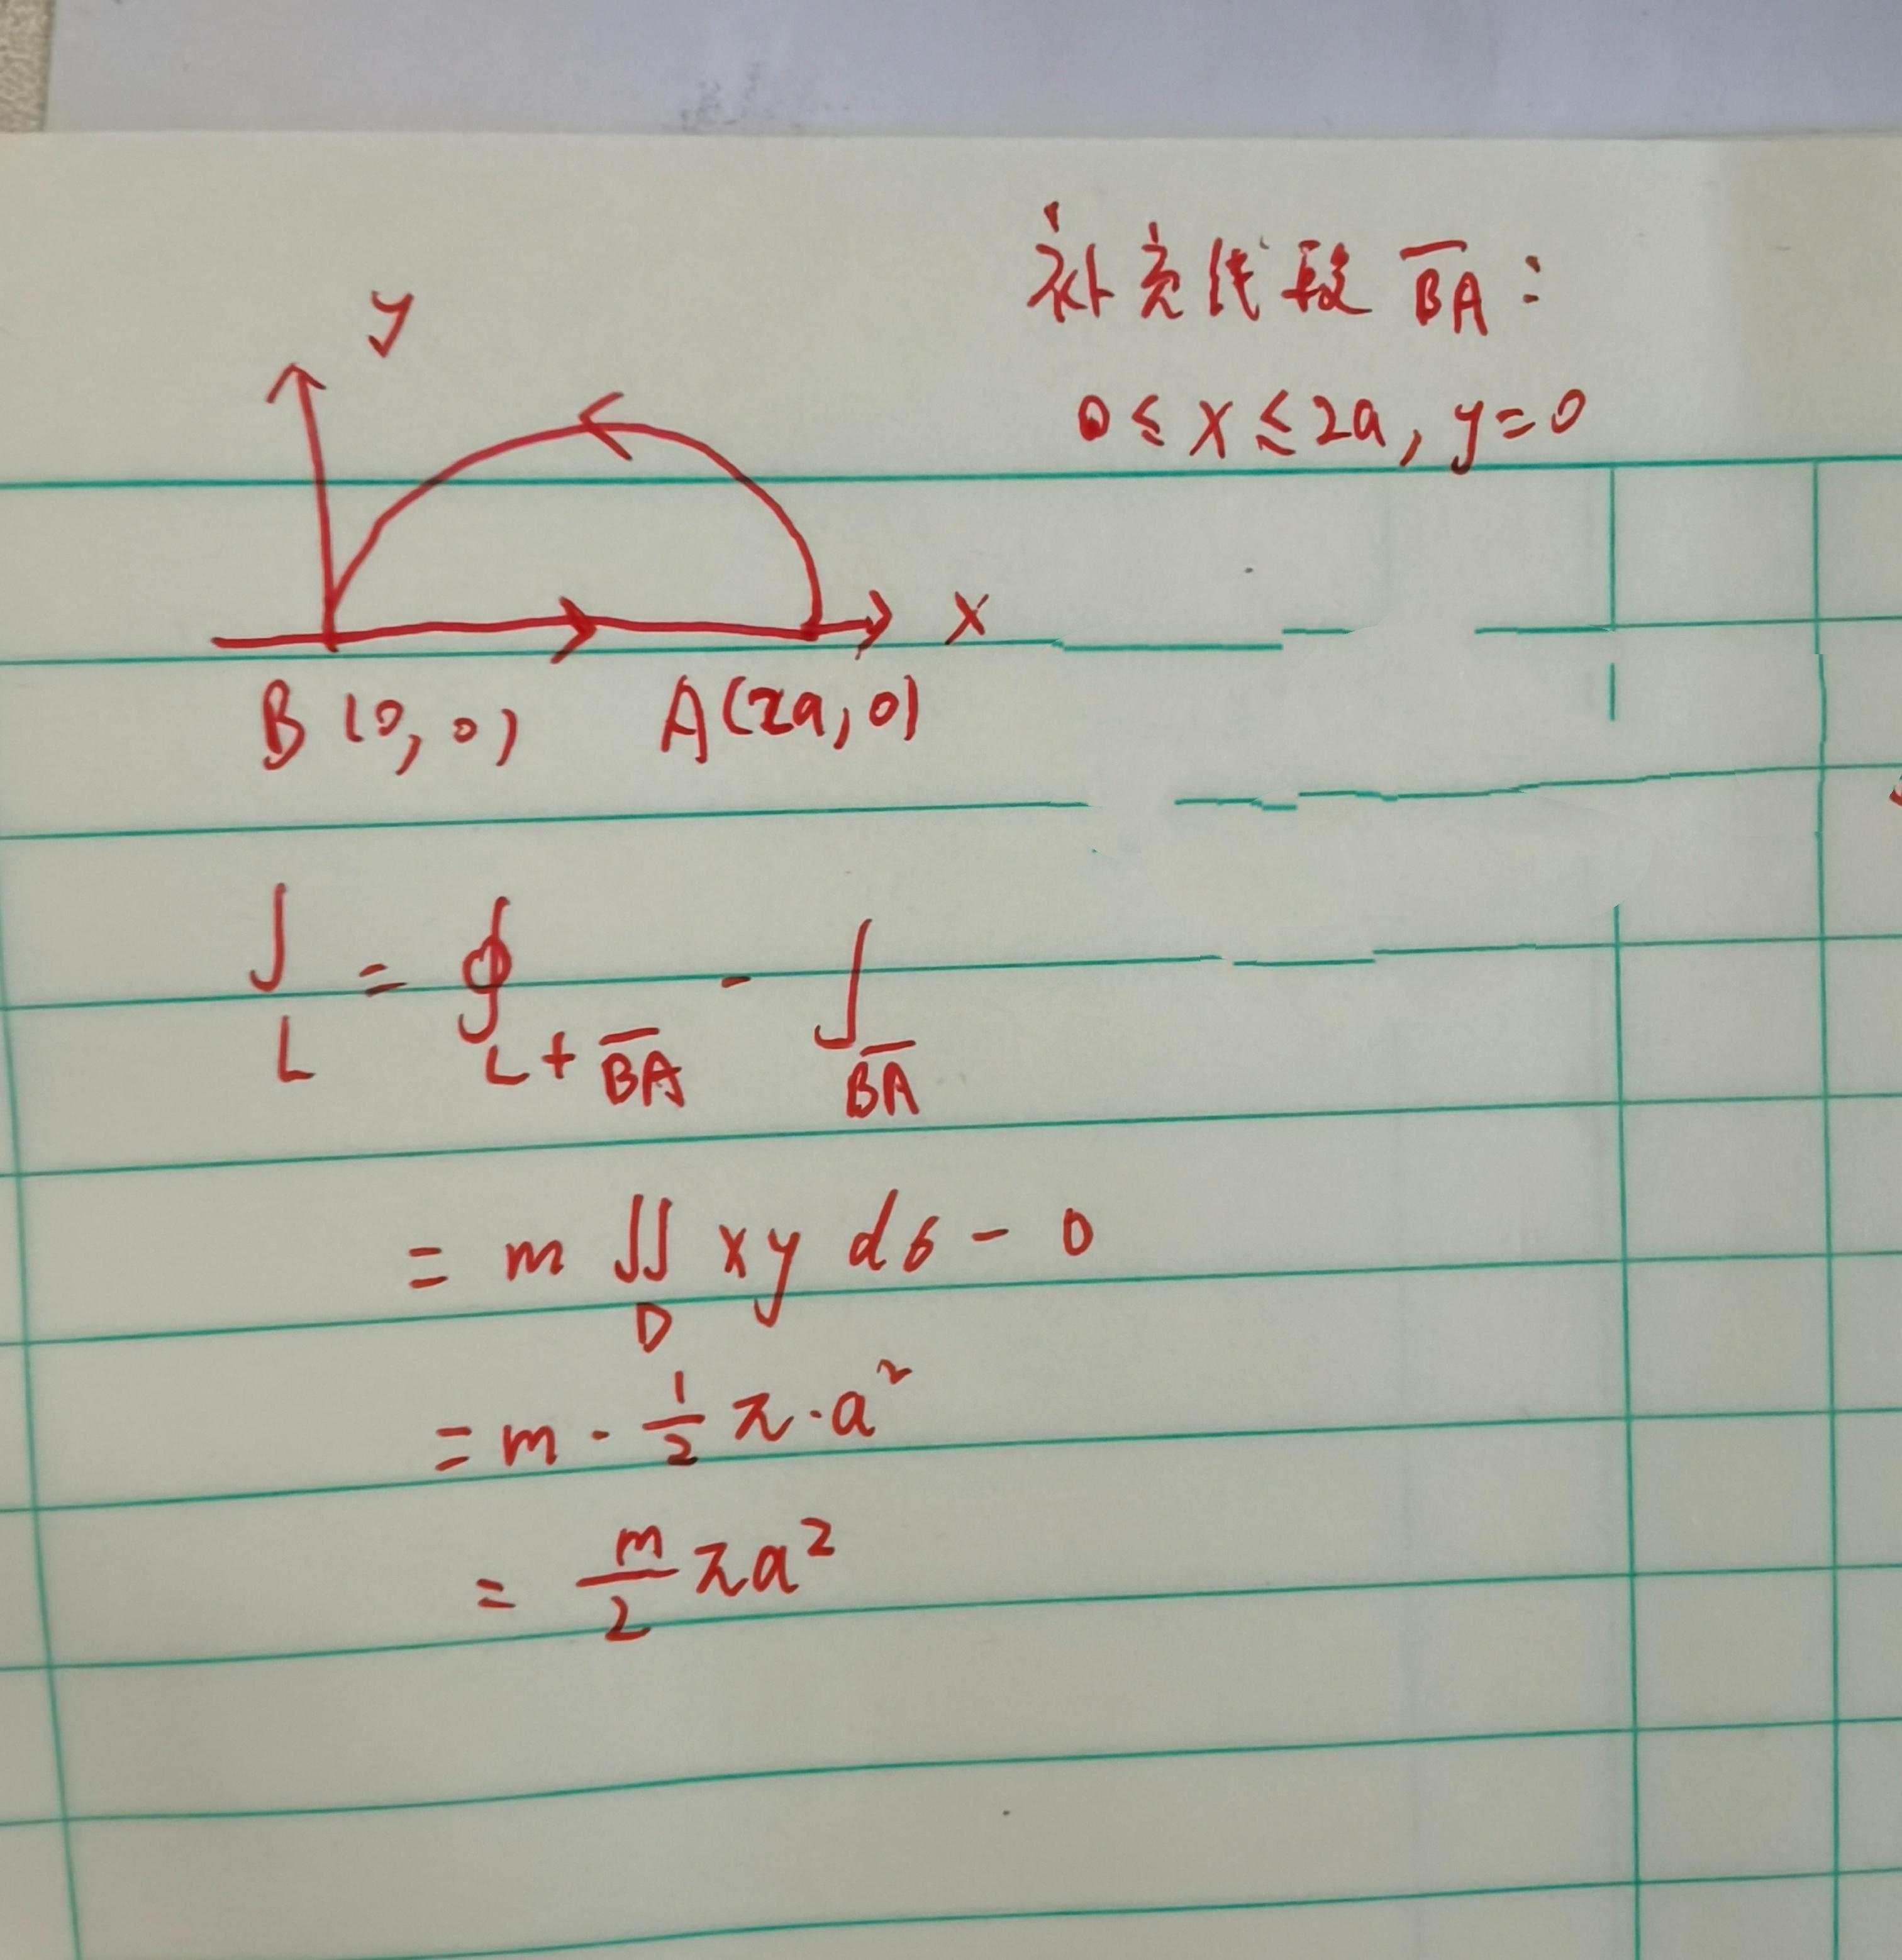 补充线段 B̅A̅:
0 ≤ x ≤ 2a, y=0
y
x
B (0, 0) A(2a, 0)
∫_L = ∮_{L+B̅A̅} - ∫_{B̅A̅}
= m ∬_D xy dσ - 0
= m · 1/2 π · a²
= m/2 πa²